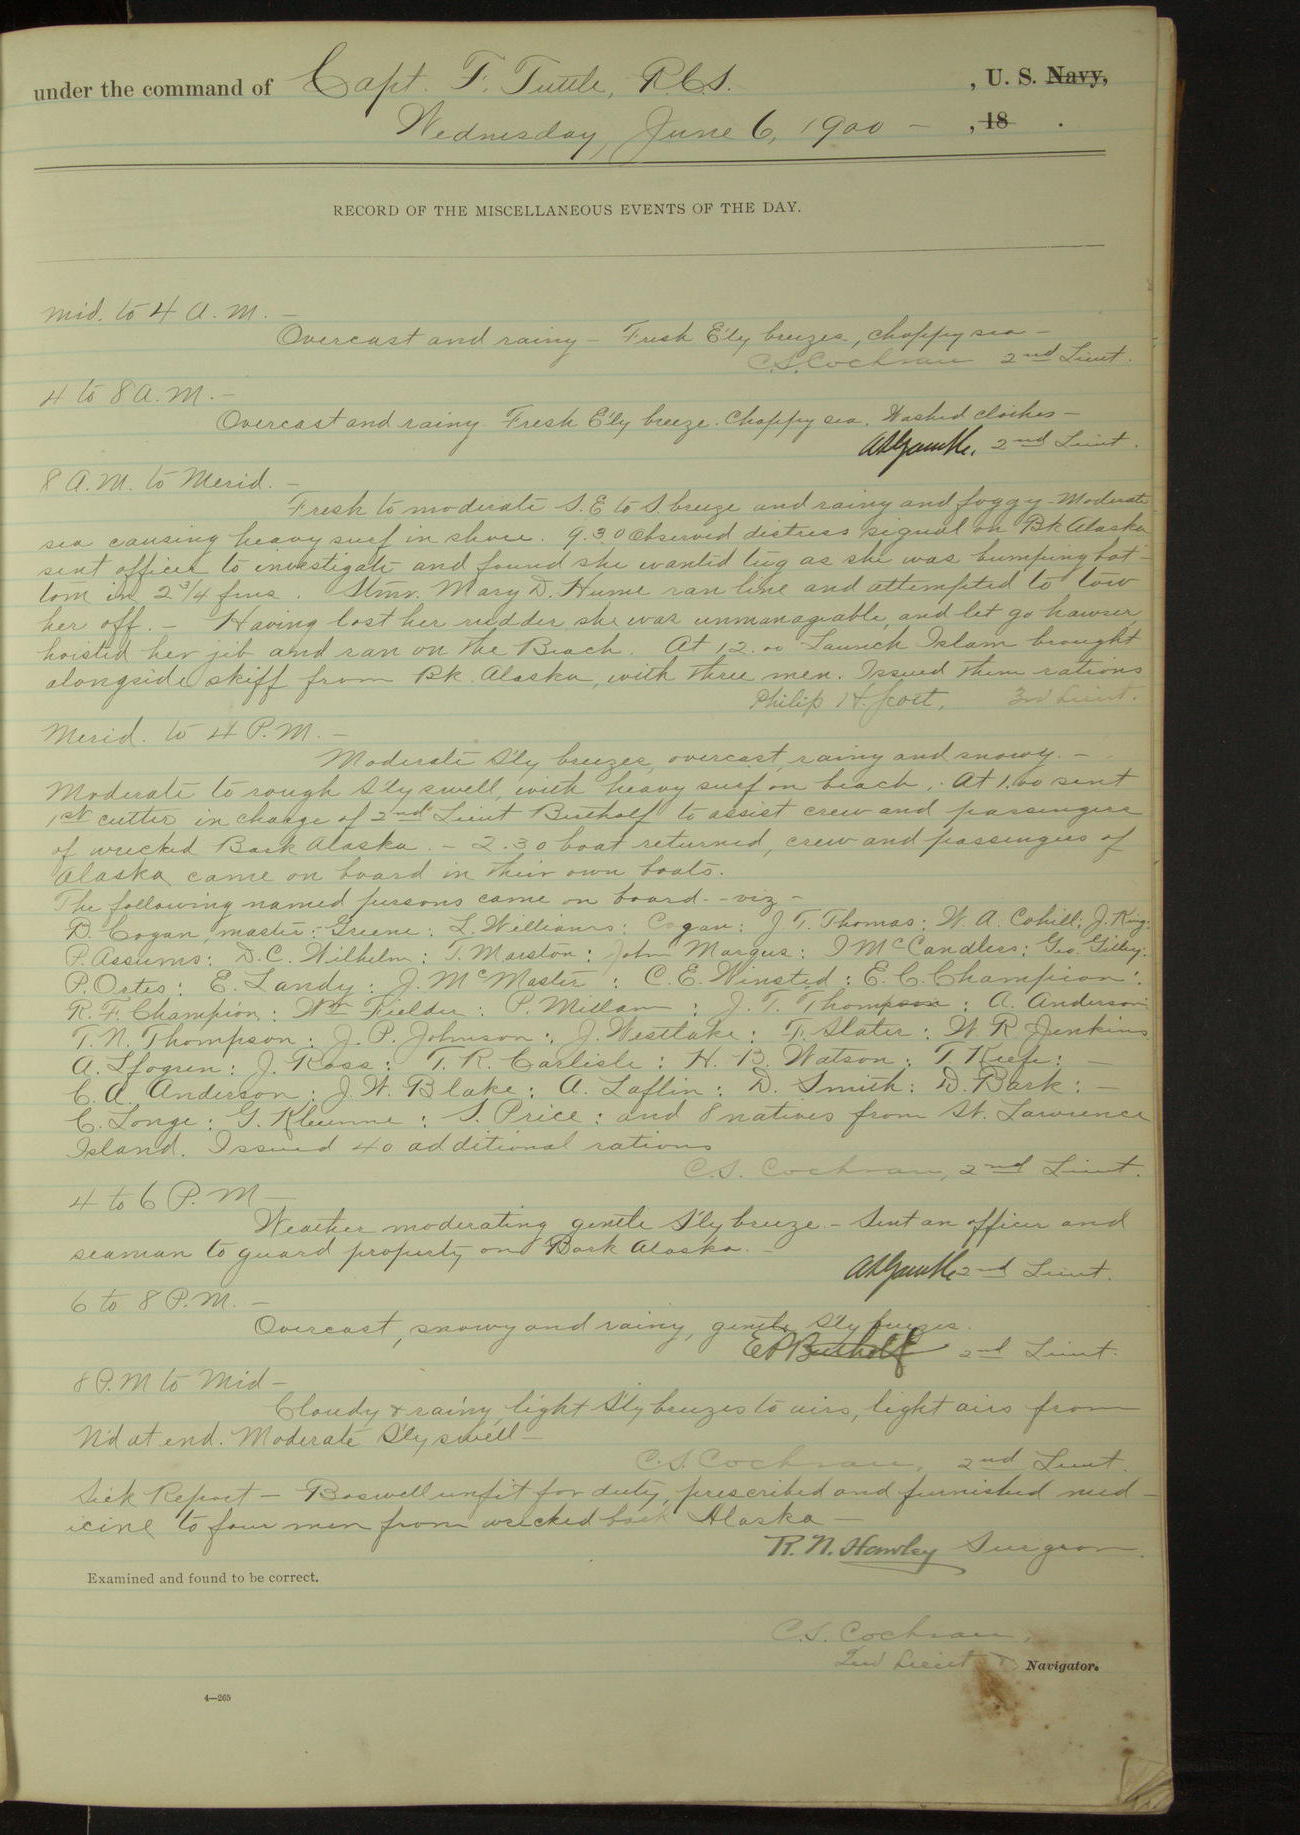 under the command of Capt. F. Tuttle, R.C.S. , U. S. Navy,
Wednesday, June 6, 1900 — , 18 .
RECORD OF THE MISCELLANEOUS EVENTS OF THE DAY.
Mid. to 4 A.M. —
Overcast and rainy – Fresh E'ly breezes, choppy sea –
C.S. Cochran 2nd Lieut.
4 to 8 A.M. —
Overcast and rainy Fresh E'ly breeze. Choppy sea. Washed clothes –
2nd Lieut.
8 A.M. to Merid. —
Fresh to moderate S.E to S. breeze and rainy and foggy. Moderate
sea causing heavy surf in shore. 9.30 Observed distress signal on Bk Alaska
sent officer to investigate and found she wanted tug as she was bumping bot-
tom in 2 3/4 fms. Stmr. Mary D. Hume ran line and attempted to tow
her off. – Having lost her rudder she was unmanageable, and let go hawser,
hoisted her jib and ran on the Beach. At 12.00 Launch Islam brought
alongside skiff from Bk. Alaska, with three men. Issued them rations
Philip H. Scott, 3rd Lieut.
Merid. to 4 P.M. —
Moderate S'ly breezes, overcast, rainy and snowy. –
Moderate to rough S'ly swell, with heavy surf on beach. At 1.00 sent
1st cutter in charge of 2nd Lieut Bertholf to assist crew and passengers
of wrecked Bark Alaska. – 2.30 boat returned, crew and passengers of
Alaska came on board in their own boats.
The following named persons came on board - viz –
D. Cogan, master: Greene: L. Williams: Cogan: J. T. Thomas: W. A. Cahill: J. King:
P. Assums: D. C. Wilhelm: T. Marston: John Margus: J McCandless: Geo. Gilley:
P. Ortes: E. Landy: J. McMaster: C. E. Winsted: E. C. Champion:
R. F. Champion: Wm Fielder: P. Millam: J. T. Thompson: A. Anderson
T. N. Thompson: J. P. Johnson: J. Westlake: T. Slater: W R Jenkins
A. Lfogren: J. Ross: T. R. Carlisle: H. B. Watson: T. Keefe: —
C. A. Anderson: J. W. Blake: A. Laflin: D. Smith: D. Bark: —
C. Longe: G. Kleunne: S. Price: and 8 natives from St. Lawrence
Island. Issued 40 additional rations
C. S. Cochran, 2nd Lieut.
4 to 6 P.M. —
Weather moderating gentle S'ly breeze – Sent an officer and
seaman to guard property on Bark Alaska. –
2nd Lieut.
6 to 8 P.M. —
Overcast, snowy and rainy, gentle S'ly breezes.
E P Bertholf 2nd Lieut.
8 P.M to Mid —
Cloudy & rainy, light S'ly breezes to airs, light airs from
N'd at end. Moderate S'ly swell —
C. S. Cochran, 2nd Lieut.
Sick Report — Boswell unfit for duty, prescribed and furnished med-
icine to four men from wrecked bark Alaska —
R. N. Hawley Surgeon.
Examined and found to be correct.
C. S. Cochran,
2nd Lieut Navigator.
4—265